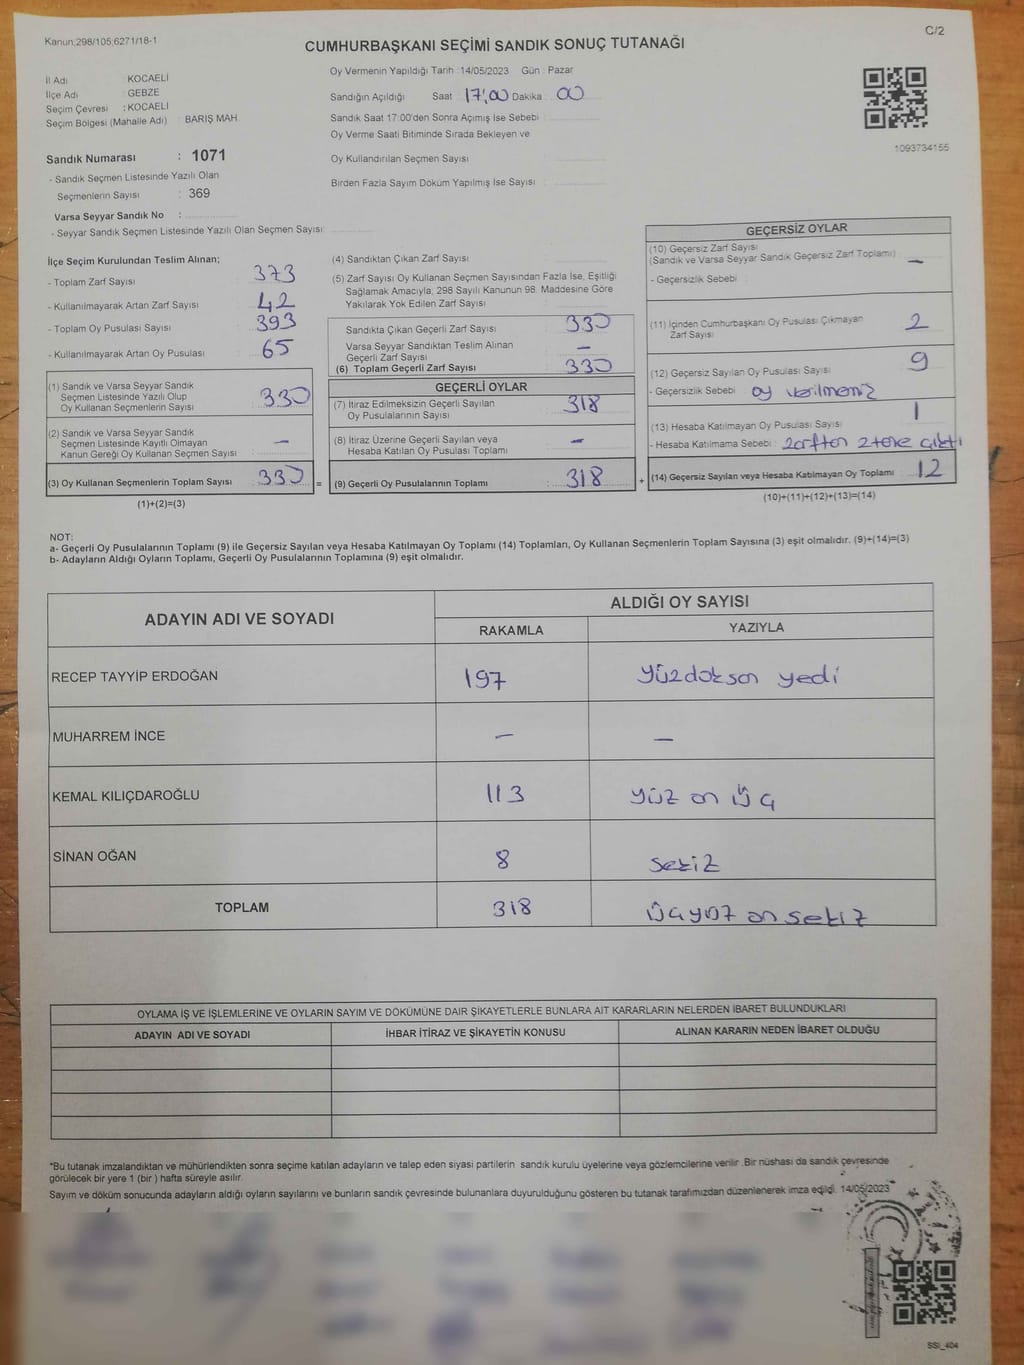 Kanun;298/105;6271/18-1
C/2
CUMHURBAŞKANI SEÇİMİ SANDIK SONUÇ TUTANAĞI
İl Adı : KOCAELİ
İlçe Adı : GEBZE
Seçim Çevresi : KOCAELİ
Seçim Bölgesi (Mahalle Adı) : BARIŞ MAH.
Sandık Numarası : 1071
- Sandık Seçmen Listesinde Yazılı Olan
Seçmenlerin Sayısı : 369
Varsa Seyyar Sandık No :
- Seyyar Sandık Seçmen Listesinde Yazılı Olan Seçmen Sayısı:
Oy Vermenin Yapıldığı Tarih :14/05/2023 Gün : Pazar
Sandığın Açıldığı Saat : 17:00 Dakika : 00
Sandık Saat 17:00'den Sonra Açımış İse Sebebi :
Oy Verme Saati Bitiminde Sırada Bekleyen ve
Oy Kullandırılan Seçmen Sayısı :
Birden Fazla Sayım Döküm Yapılmış İse Sayısı :
1093734155
İlçe Seçim Kurulundan Teslim Alınan;
- Toplam Zarf Sayısı : 373
- Kullanılmayarak Artan Zarf Sayısı : 42
- Toplam Oy Pusulası Sayısı : 393
- Kullanılmayarak Artan Oy Pusulası : 65
(1) Sandık ve Varsa Seyyar Sandık
Seçmen Listesinde Yazılı Olup
Oy Kullanan Seçmenlerin Sayısı : 330
(2) Sandık ve Varsa Seyyar Sandık
Seçmen Listesinde Kayıtlı Olmayan
Kanun Gereği Oy Kullanan Seçmen Sayısı : —
(3) Oy Kullanan Seçmenlerin Toplam Sayısı : 330 =
(1)+(2)=(3)
(4) Sandıktan Çıkan Zarf Sayısı :
(5) Zarf Sayısı Oy Kullanan Seçmen Sayısından Fazla İse, Eşitliği
Sağlamak Amacıyla; 298 Sayılı Kanunun 98. Maddesine Göre
Yakılarak Yok Edilen Zarf Sayısı :
Sandıkta Çıkan Geçerli Zarf Sayısı : 330
Varsa Seyyar Sandıktan Teslim Alınan
Geçerli Zarf Sayısı : —
(6) Toplam Geçerli Zarf Sayısı : 330
GEÇERLİ OYLAR
(7) İtiraz Edilmeksizin Geçerli Sayılan
Oy Pusulalarının Sayısı : 318
(8) İtiraz Üzerine Geçerli Sayılan veya
Hesaba Katılan Oy Pusulası Toplamı : —
(9) Geçerli Oy Pusulalarının Toplamı : 318 +
GEÇERSİZ OYLAR
(10) Geçersiz Zarf Sayısı
(Sandık ve Varsa Seyyar Sandık Geçersiz Zarf Toplamı) : —
- Geçersizlik Sebebi :
(11) İçinden Cumhurbaşkanı Oy Pusulası Çıkmayan
Zarf Sayısı : 2
(12) Geçersiz Sayılan Oy Pusulası Sayısı : 9
- Geçersizlik Sebebi : oy verilmemiş
(13) Hesaba Katılmayan Oy Pusulası Sayısı : 1
- Hesaba Katılmama Sebebi : zarftan 2 tane çıktı
(14) Geçersiz Sayılan veya Hesaba Katılmayan Oy Toplamı : 12
(10)+(11)+(12)+(13)=(14)
NOT:
a- Geçerli Oy Pusulalarının Toplamı (9) ile Geçersiz Sayılan veya Hesaba Katılmayan Oy Toplamı (14) Toplamları, Oy Kullanan Seçmenlerin Toplam Sayısına (3) eşit olmalıdır. (9)+(14)=(3)
b- Adayların Aldığı Oyların Toplamı, Geçerli Oy Pusulalarının Toplamına (9) eşit olmalıdır.
ADAYIN ADI VE SOYADI
ALDIĞI OY SAYISI
RAKAMLA YAZIYLA
RECEP TAYYİP ERDOĞAN 197 yüzdoksan yedi
MUHARREM İNCE — —
KEMAL KILIÇDAROĞLU 113 yüz on üç
SİNAN OĞAN 8 sekiz
TOPLAM 318 üçyüz on sekiz
OYLAMA İŞ VE İŞLEMLERİNE VE OYLARIN SAYIM VE DÖKÜMÜNE DAİR ŞİKAYETLERLE BUNLARA AİT KARARLARIN NELERDEN İBARET BULUNDUKLARI
ADAYIN ADI VE SOYADI İHBAR İTİRAZ VE ŞİKAYETİN KONUSU ALINAN KARARIN NEDEN İBARET OLDUĞU
*Bu tutanak imzalandıktan ve mühürlendikten sonra seçime katılan adayların ve talep eden siyasi partilerin sandık kurulu üyelerine veya gözlemcilerine verilir. Bir nüshası da sandık çevresinde
görülecek bir yere 1 (bir ) hafta süreyle asılır.
Sayım ve döküm sonucunda adayların aldığı oyların sayılarını ve bunların sandık çevresinde bulunanlara duyurulduğunu gösteren bu tutanak tarafımızdan düzenlenerek imza edildi. 14/05/2023
SSI_404